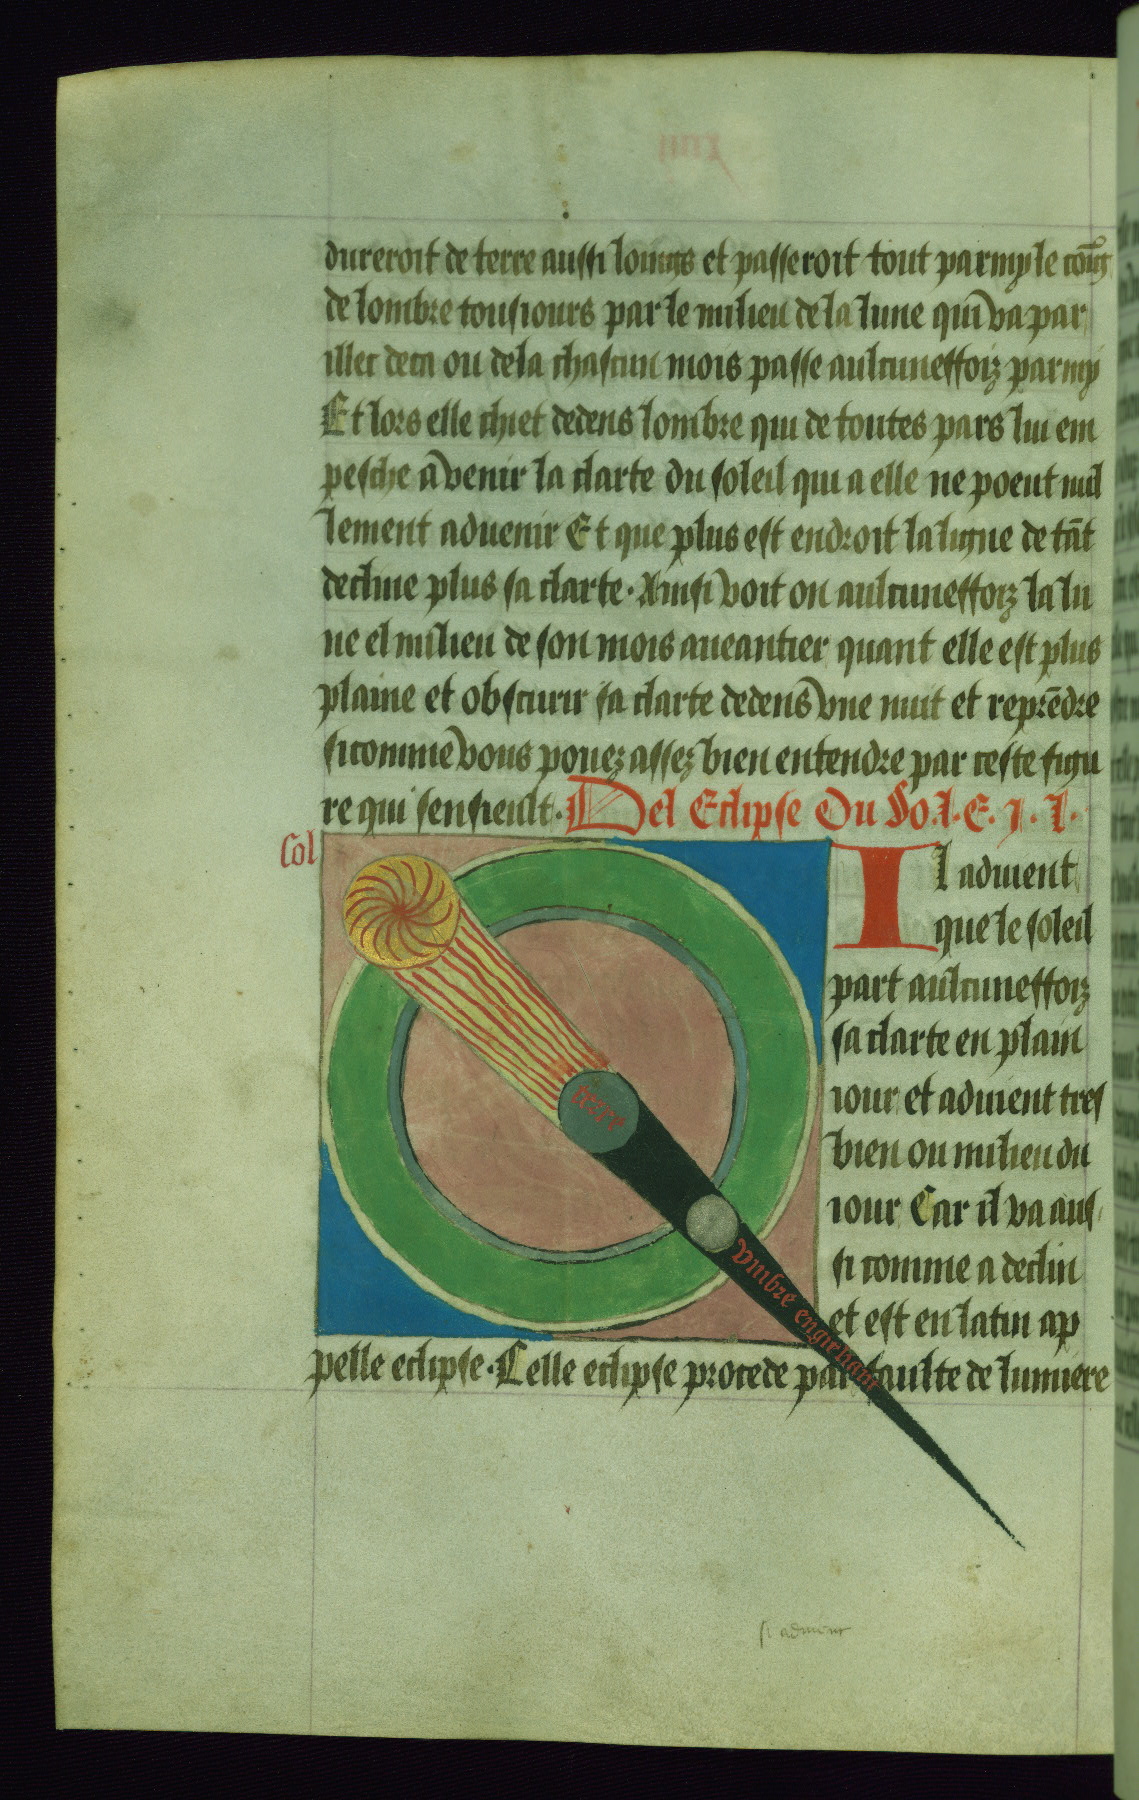 dureroit de terre aussi loings et passeroit tout parmy le
de lombre tousiours par le milieu de la lune qui va par
illec deca ou dela chascun mois passe aulcuneffoiz parmy
Et lors elle chiet dedens lombre qui de toutes pars lui em
pesche a venir la clarte du soleil qui a elle ne poeut nul
lement aduenir Et que plus est endroit la ligne de tāt
decline plus sa clarte · Ainsi voit on aulcuneffoiz la lu
ne el milieu de son mois aueantier quant elle est plus
plaine et obscurir sa clarte dedens vne nuit et reprēdre
si comme vous pouez assez bien entendre par ceste figu
re qui sensieult · Del Eclipse Du So.l.E.i.l.
Sol
Il aduient
que le soleil
part aulcuneffoiz
sa clarte en plain
iour et aduient tres
bien ou milieu du
iour Car il va aus
si comme a declin
et est en latin ap
pelle eclipse · Celle eclipse procede par faulte de lumiere
terre
vmbre
si aduient